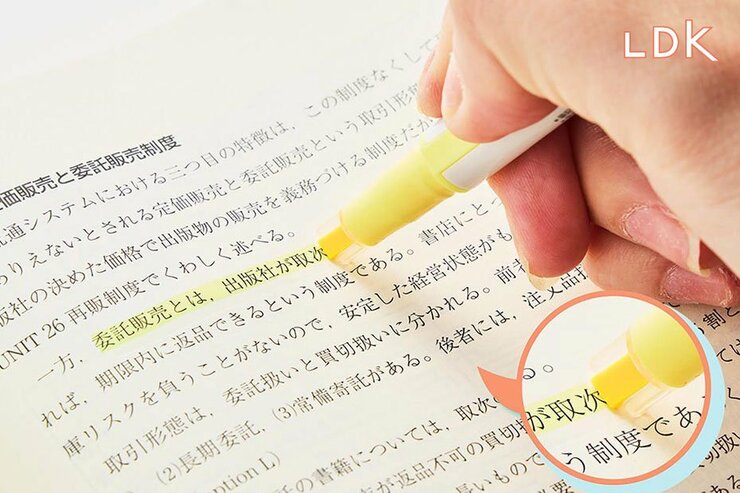 LDK
価販売と委託販売制度
通システムにおける三つ目の特徴は,この制度なくして
わりえないとされる定価販売と委託販売という取引形態
版社の決めた価格で出版物の販売を義務づける制度だが
UNIT 26 再販制度でくわしく述べる。
一方,委託販売とは,出版社が取次
れば,期限内に返品できるという制度である。書店にとっ
庫リスクを負うことがないので,安定した経営状態がも
取引形態は,委託扱いと買切扱いに分かれる。前
(2)長期委託,(3)常備寄託がある。後者には,注文品扱
ption L)
託の書籍については,取次
が返品不可の買切
長いもので
る。
が取次
う制度であ